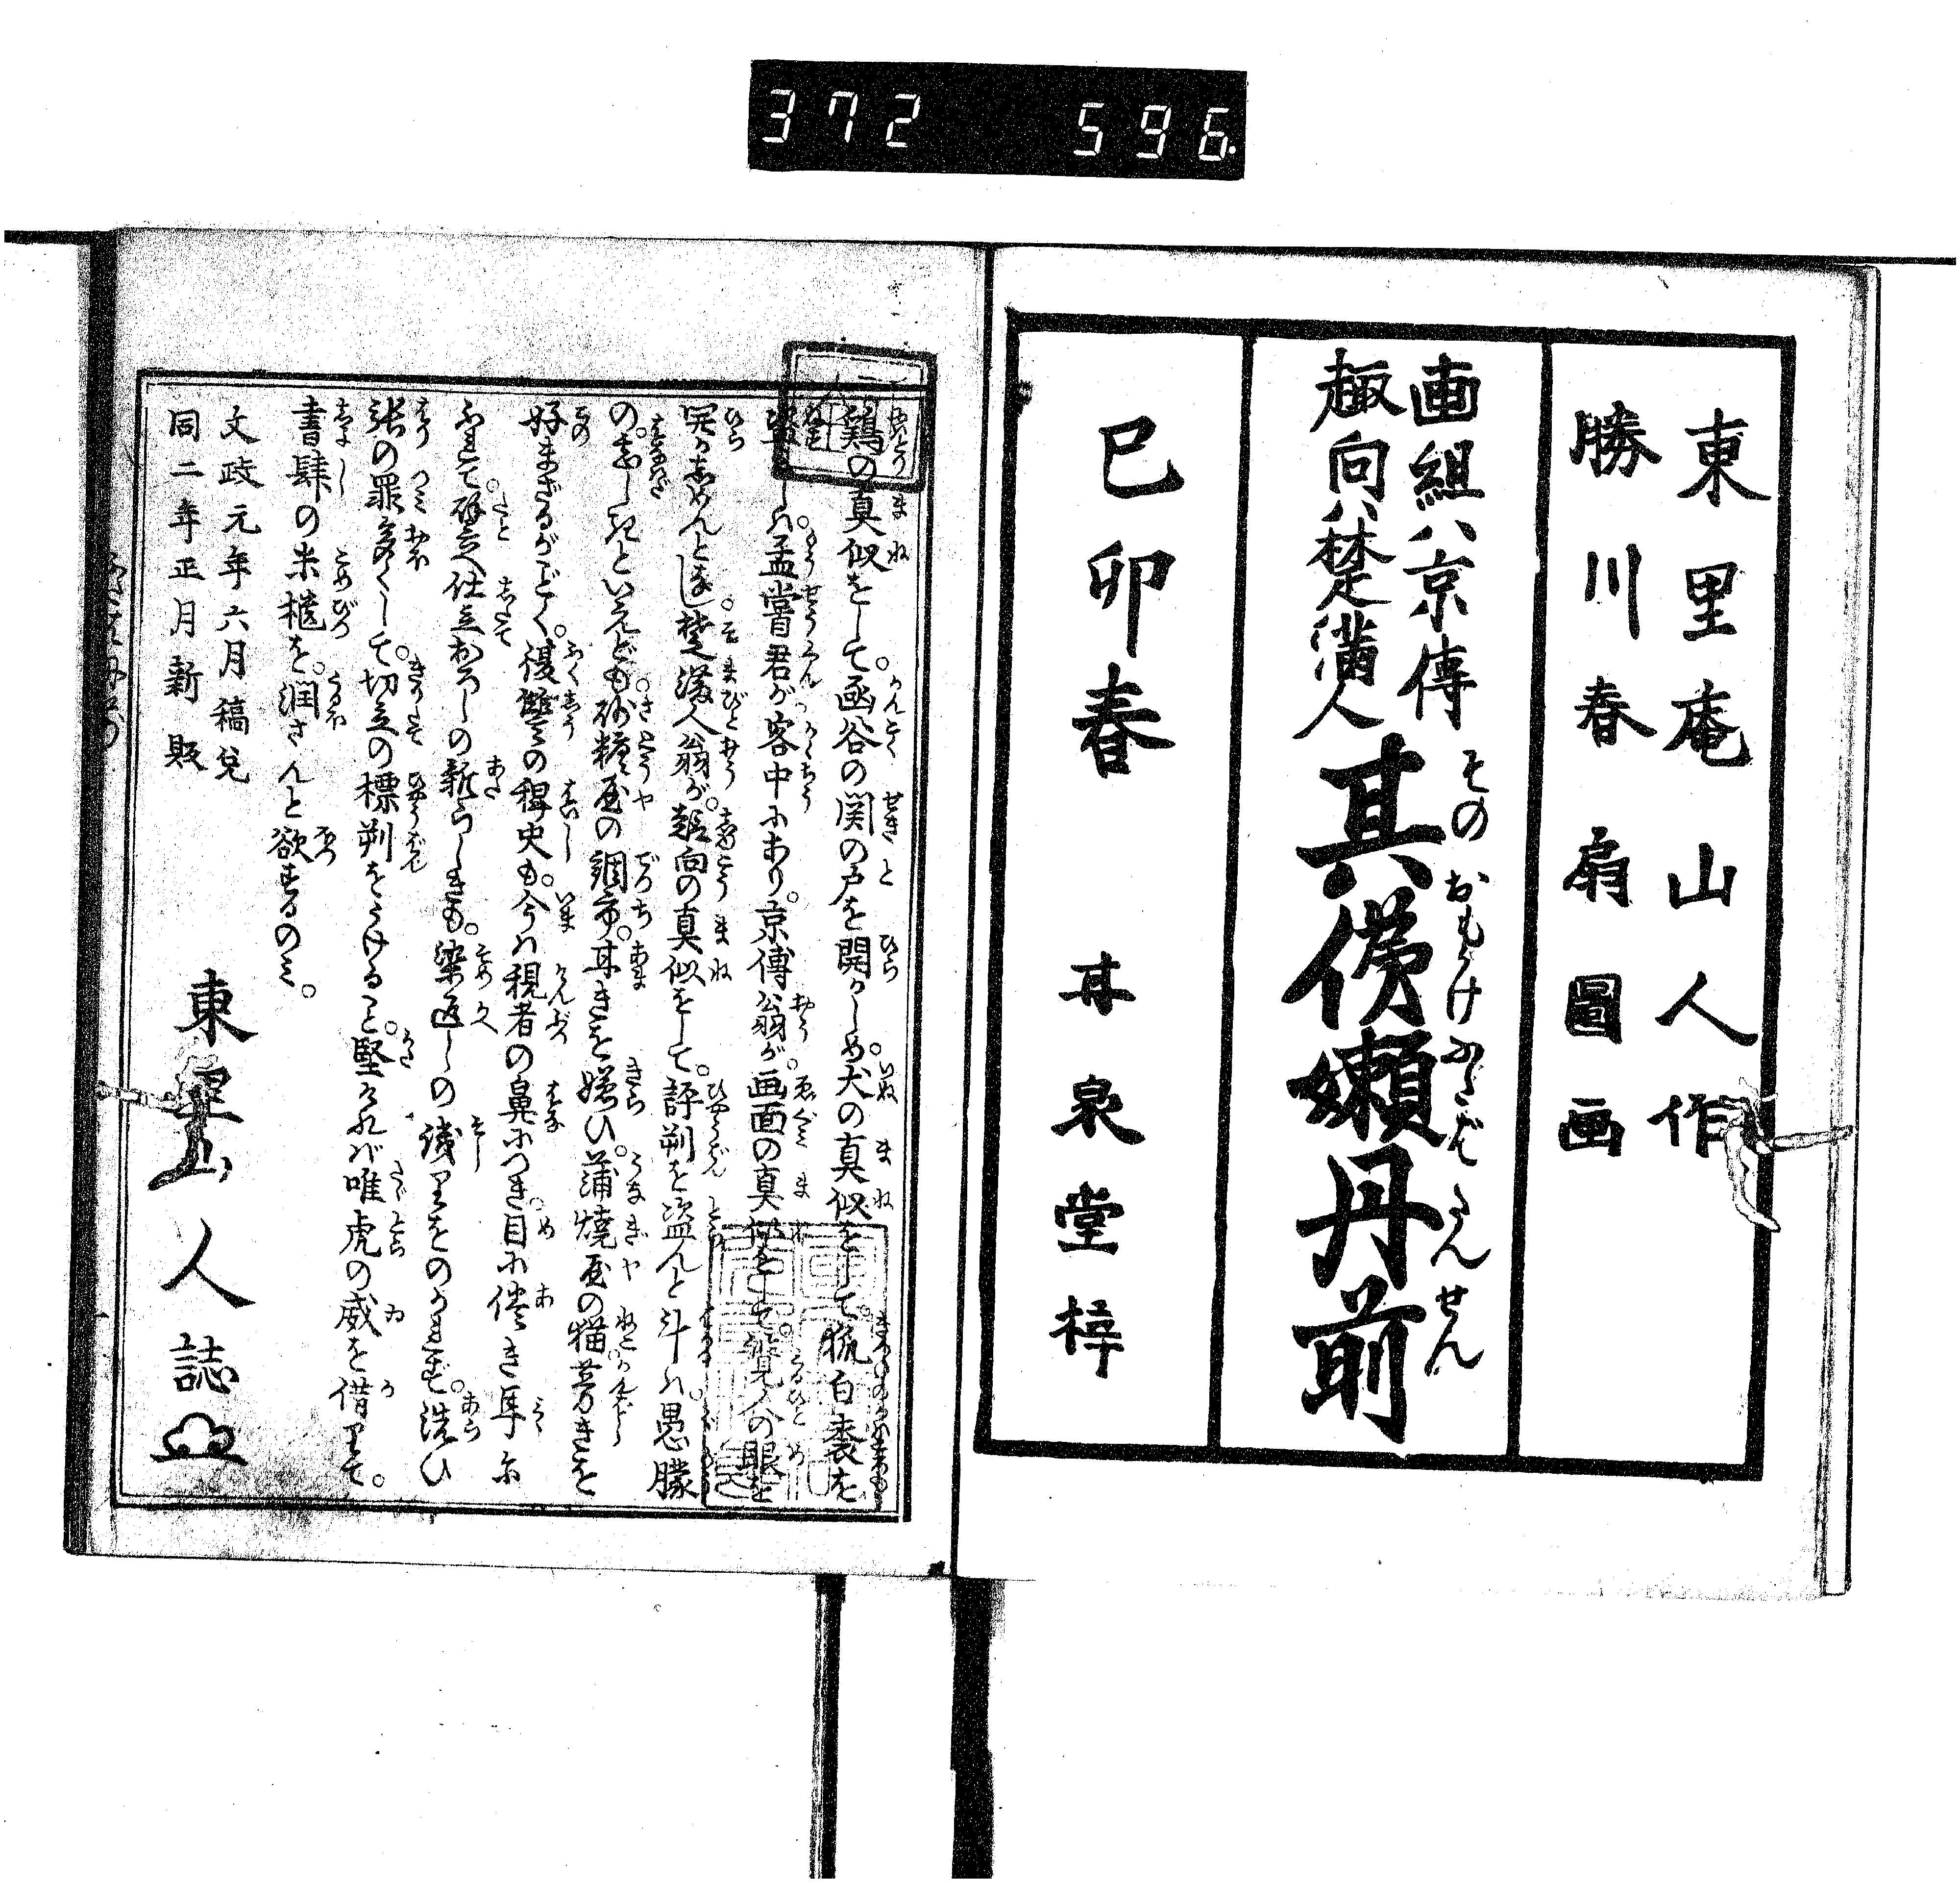 372 596.
東里庵山人作
勝川春扇圖画
画組ハ京傳
趣向ハ楚満人
そのおもかげふかべたんぜん
其俤嬾丹前
巳卯春 丼泉堂梓
鶏の真似をして。函谷の関の戸を開かしめ。犬の真似をして。狐白裘を
孟嘗君が客中にあり。京傳翁が。画面の真似をして。覧人の眼を
笑かしめんとし。楚満人翁が。趣向の真似をして。評判を盗んと斗ハ。愚朦
の。といへども。砂糖屋の鯝市。甘きを嫌ひ。蒲焼屋の猫。芳きを
好まざるがごとく。復讐の稗史も。今ハ視者の鼻につき。目に倦き耳に
仕立おろしの新らしきも。染返しの洗ひ
張の罪多くして。切立の標判をうけること。堅けれバ唯虎の威を借りて。
書肆の米櫃を。潤さんと欲するのミ。
文政元年六月稿兌
同二年正月新販
東里山人誌